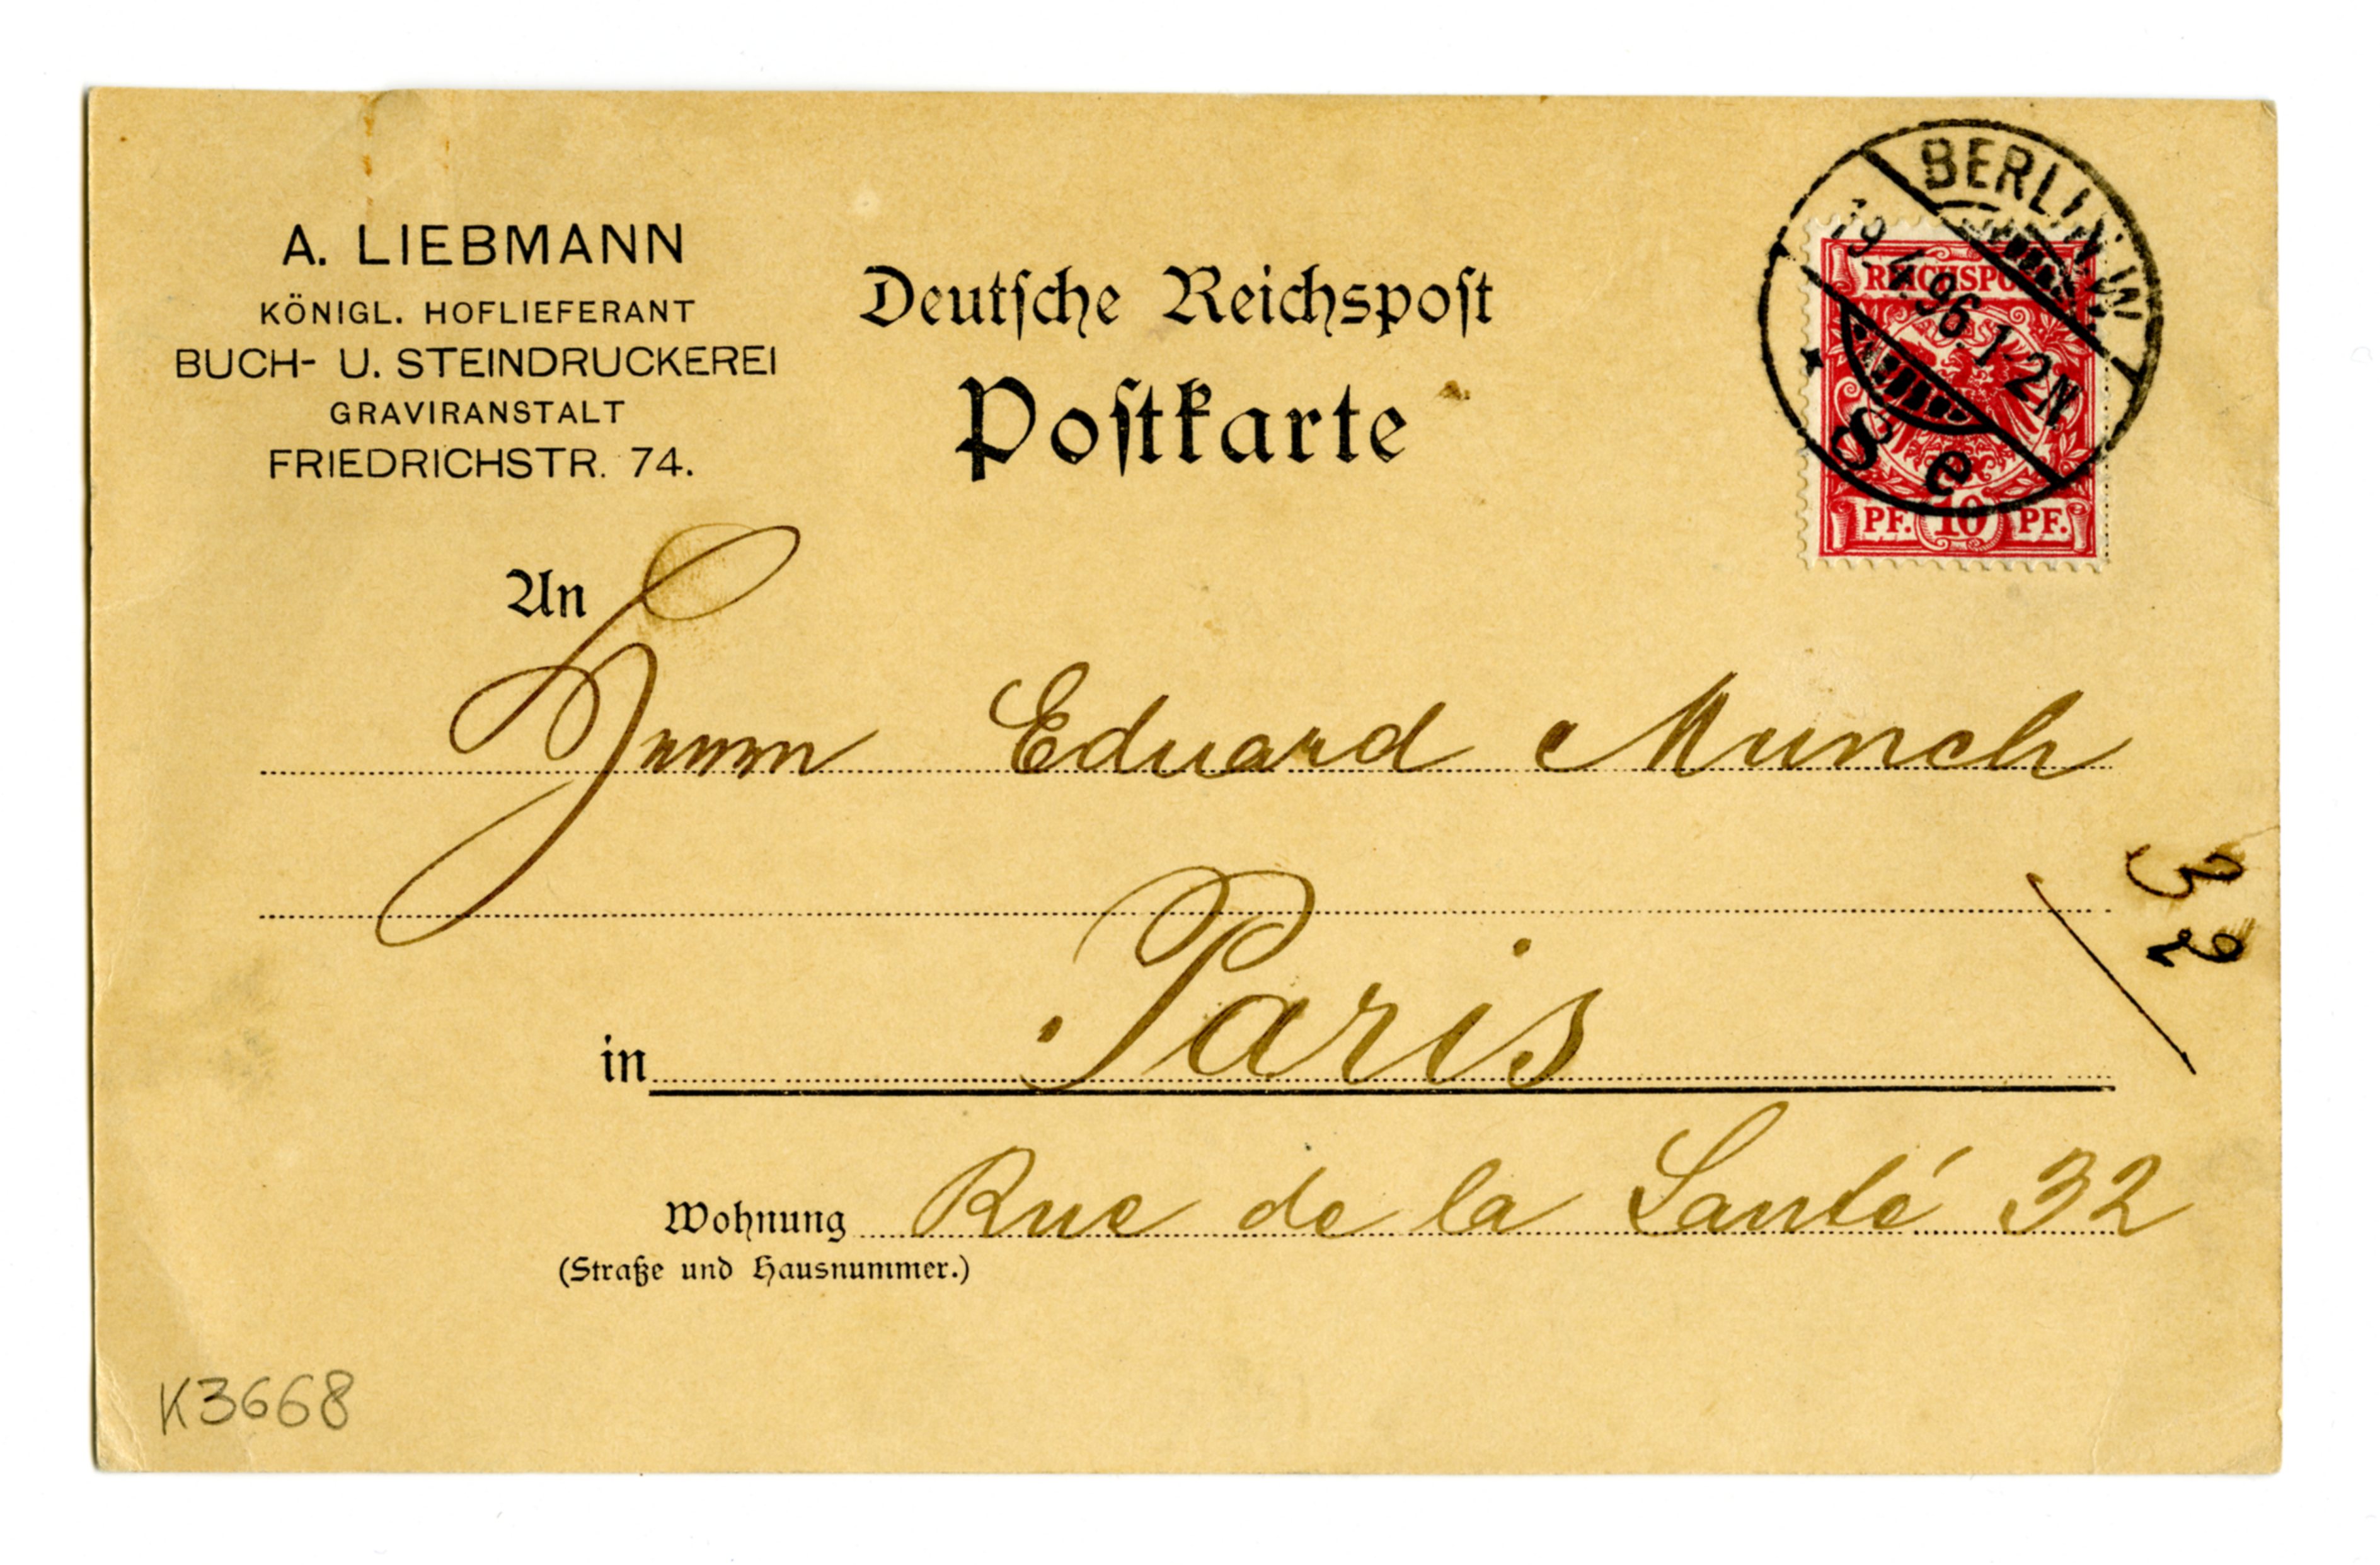 A. LIEBMANN
KÖNIGL. HOFLIEFERANT
BUCH- U. STEINDRUCKEREI
GRAVIRANSTALT
FRIEDRICHSTR. 74.
Deutsche Reichspost
Postkarte
BERLIN W
19.4.96.1-2N
8 e
REICHSPO
PF. 10 PF.
An
Herrn Eduard Munch
32
in Paris
Wohnung Rue de la Santé 32
(Straße und Hausnummer.)
K3668